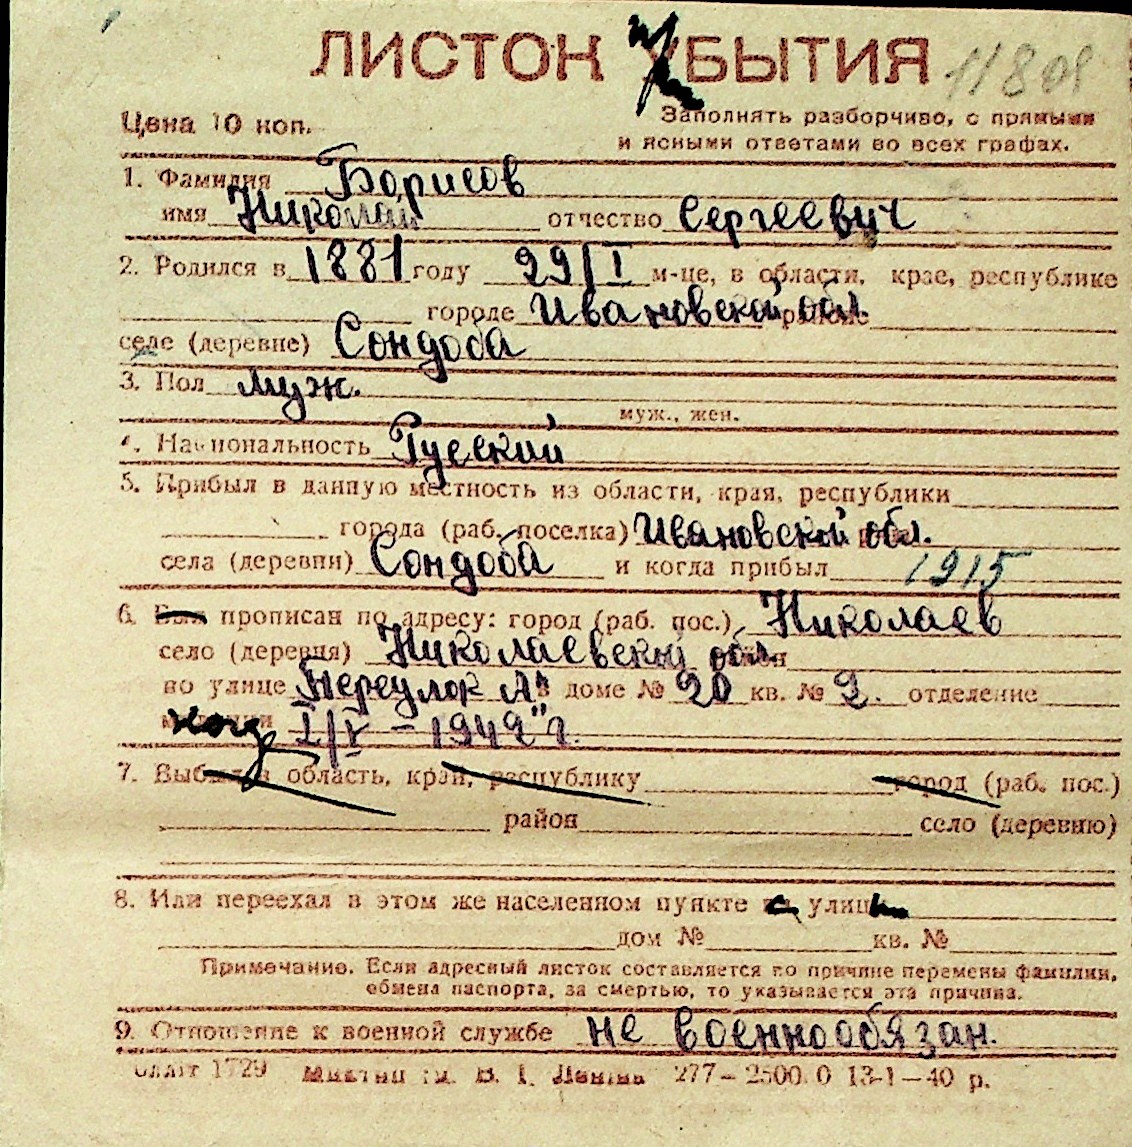 ЛИСТОК УБЫТИЯ 11809
Цена 10 коп.
Заполнять разборчиво, с прямыми
и ясными ответами во всех графах.
1. Фамилия Борисов
имя Николай отчество Сергеевич
2. Родился в 1881 году 29/I м-це, в области, крае, республике
городе Ивановской обл. районе
селе (деревне) Сондоба
3. Пол муж.
муж., жен.
4. Национальность Русский
5. Прибыл в данную местность из области, края, республики
города (раб. поселка) Ивановской обл.
села (деревни) Сондоба и когда прибыл 1915
6. Был прописан по адресу: город (раб. пос.) Николаев
село (деревня) Николаевской обл.
по улице Переулок А" в доме № 20 кв. № 2. отделение
I/V - 1942 г.
7. Выбыл в область, край, республику город (раб. пос.)
район село (деревню)
8. Или переехал в этом же населенном пункте с улицы
дом № кв. №
Примечание. Если адресный листок составляется по причине перемены фамилии,
обмена паспорта, за смертью, то указывается эта причина.
9. Отношение к военной службе не военнообязан.
1729 им. В. І. Леніна 277-2500.0 13-1-40 р.